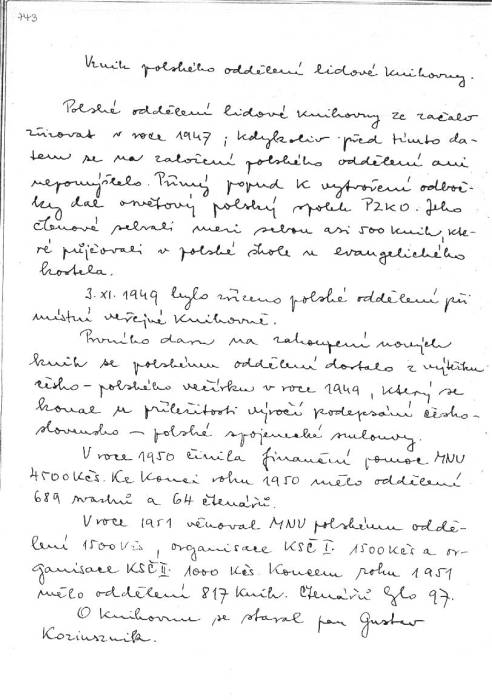 743
Vznik polského oddělení lidové knihovny.
Polské oddělení lidové knihovny ze začalo
zřizovat v roce 1947, kdykoliv před tímto da-
tem se na založení polského oddělení ani
nepomýšlelo. Přímý popud k vytvoření odboč-
ky dal osvětový polský spolek PZKO. Jeho
členové sehnali mezi sebou asi 500 knih, kte-
ré půjčovali v polské škole u evangelického
kostela.
3. XI. 1949 bylo zřízeno polské oddělení při
místní veřejné knihovně.
Prvního daru na zakoupení nových
knih se polskému oddělení dostalo z výtěžku
česko-polského večírku v roce 1949, který se
konal u příležitosti výročí podepsání česko-
slovensko-polské spojenecké smlouvy.
V roce 1950 činila finanční pomoc MNV
4500 Kčs. Ke konci roku 1950 mělo oddělení
689 svazků a 64 čtenářů.
V roce 1951 věnoval MNV polskému oddě-
lení 1500 Kčs, organisace KSČ I. 1500 Kčs a or-
ganisace KSČ II. 1000 Kčs. Koncem roku 1951
mělo oddělení 817 knih. Čtenářů bylo 97.
O knihovnu se staral pan Gustav
Koziusznik.